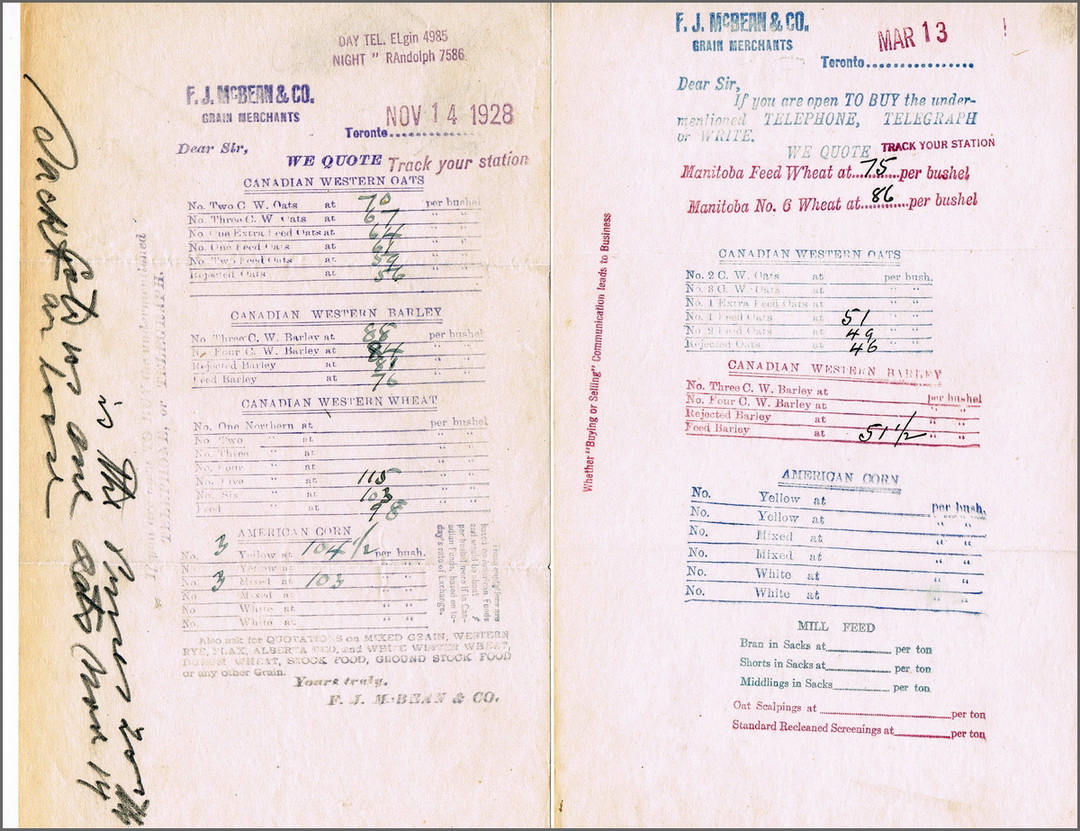 DAY TEL. ELgin 4985
NIGHT " RAndolph 7586
F. J. McBEAN & CO.
GRAIN MERCHANTS
NOV 14 1928
Toronto
Dear Sir,
WE QUOTE Track your station
CANADIAN WESTERN OATS
No. Two C. W. Oats at 70 per bushel
No. Three C. W. Oats at 67 " "
No One Extra Feed Oats at 64 " "
No. One Feed Oats at 61 " "
No. Two Feed Oats at 59 " "
Rejected Oats at 56 " "
CANADIAN WESTERN BARLEY
No. Three C. W. Barley at 88 per bushel
No. Four C. W. Barley at 84 " "
Rejected Barley at " "
Feed Barley at 76 " "
CANADIAN WESTERN WHEAT
No. One Northern at per bushel
No. Two " at " "
No. Three " " "
No. Four " " "
No. Five " at 115 " "
No. Six " at 103 " "
Feed " at 98 " "
AMERICAN CORN
No. 3 Yellow at 104 1/2 per bush.
No. Yellow at " "
No. 3 Mixed at 103 " "
No. Mixed at " "
No. White at " "
No. White at " "
Also ask for QUOTATIONS on MIXED GRAIN, WESTERN
RYE, FLAX, ALBERTA RED, and WHITE WINTER WHEAT,
DURUM WHEAT, STOCK FOOD, GROUND STOCK FOOD
or any other Grain.
Yours truly.
F. J. McBEAN & CO.
is the
TELEPHONE, or TELEGRAPH.
day's rate of Exchange.
F. J. McBEAN & CO.
GRAIN MERCHANTS
MAR 13
Toronto
Dear Sir,
If you are open TO BUY the under-
mentioned TELEPHONE, TELEGRAPH
or WRITE.
WE QUOTE TRACK YOUR STATION
Manitoba Feed Wheat at 75 per bushel
Manitoba No. 6 Wheat at 86 per bushel
Whether "Buying or Selling" Communication leads to Business
CANADIAN WESTERN OATS
No. 2 C. W. Oats at per bush.
No. 3 C. W. Oats at " "
No. 1 Extra Feed Oats at " "
No. 1 Feed Oats at 51 " "
No. 2 Feed Oats at 49 " "
Rejected Oats at 46 " "
CANADIAN WESTERN BARLEY
No. Three C. W. Barley at per bushel
No. Four C. W. Barley at " "
Rejected Barley at " "
Feed Barley at 51 1/2 " "
AMERICAN CORN
No. Yellow at per bush.
No. Yellow at " "
No. Mixed at " "
No. Mixed at " "
No. White at " "
No. White at " "
MILL FEED
Bran in Sacks at per ton
Shorts in Sacks at per ton
Middlings in Sacks per ton
Oat Scalpings at per ton
Standard Recleaned Screenings at per ton